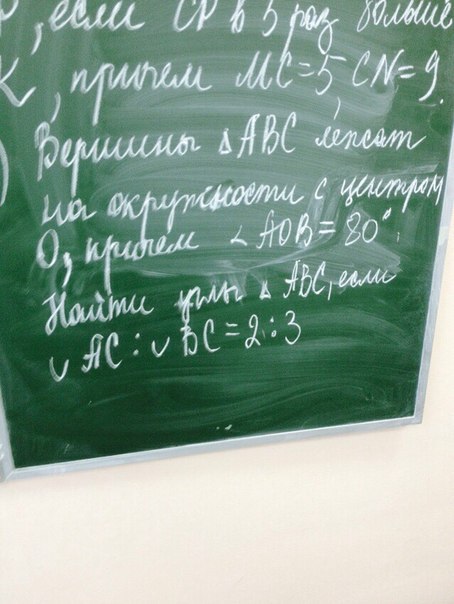 , если CP в 5 раз больше
K, причем MC=5, CN=9.
) Вершины △ABC лежат
на окружности с центром
O, причем ∠AOB=80°.
Найти углы △ABC, если
∪AC:∪BC=2:3